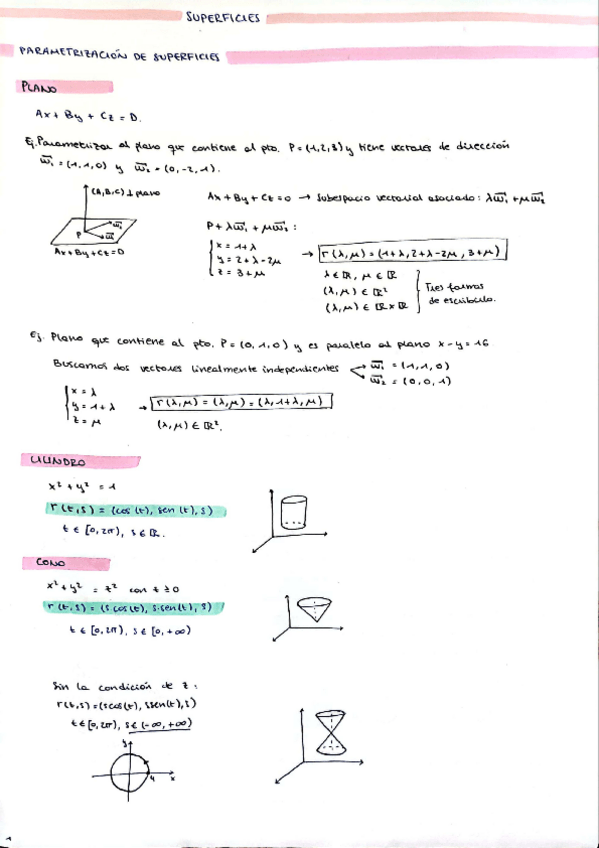 SUPERFICIES
PARAMETRIZACIÓN DE SUPERFICIES
PLANO
Ax + By + Cz = D.
Ej. Parametrizar el plano que contiene el pto. P = (1,2,3) y tiene vectores de dirección
w₁ = (1,1,0) y w₂ = (0,-2,1).
(A,B,C) ⊥ plano
P
w₂
w₁
Ax + By + Cz = D
Ax + By + Cz = 0 → Subespacio vectorial asociado: λw₁ + μw₂
P + λw₁ + μw₂ :
x = 1+λ
y = 2+λ-2μ → r(λ,μ) = (1+λ, 2+λ-2μ, 3+μ)
z = 3+μ
λ ∈ ℝ, μ ∈ ℝ
(λ,μ) ∈ ℝ²
(λ,μ) ∈ ℝ×ℝ
Tres formas
de escribirlo.
Ej. Plano que contiene al pto. P = (0,1,0) y es paralelo al plano x-y = 16
Buscamos dos vectores linealmente independientes
w₁ = (1,1,0)
w₂ = (0,0,1)
x = λ
y = 1+λ → r(λ,μ) = (λ,μ) = (λ,1+λ,μ)
z = μ
(λ,μ) ∈ ℝ².
CILINDRO
x² + y² = 1
r(t,s) = (cos(t), sen(t), s)
t ∈ [0,2π), s ∈ ℝ.
CONO
x² + y² = z² con z ≥ 0
r(t,s) = (s cos(t), s·sen(t), s)
t ∈ [0,2π), s ∈ [0,+∞)
Sin la condición de z:
r(t,s) = (s cos(t), s sen(t), s)
t ∈ [0,2π), s ∈ (-∞,+∞)
y
x
1